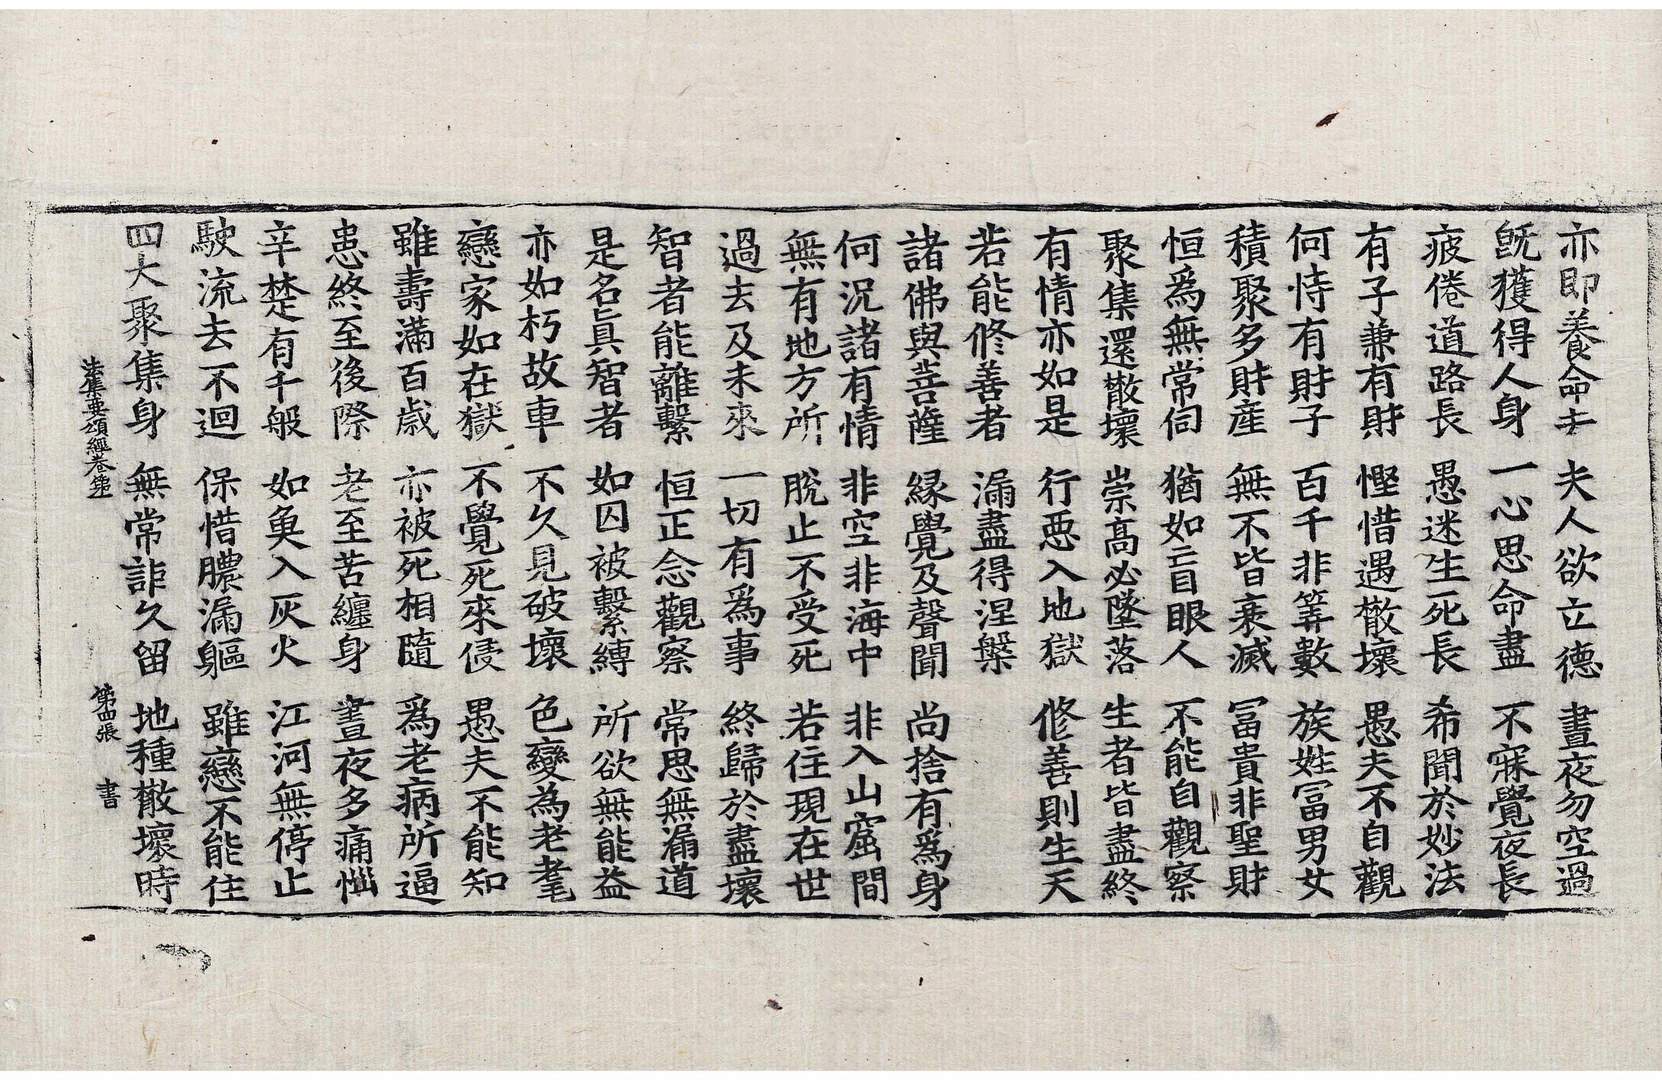 亦即養命去 夫人欲立德 晝夜勿空過
旣獲得人身 一心思命盡 不寐覺夜長
疲倦道路長 愚迷生死長 希聞於妙法
有子兼有財 慳惜遇散壞 愚夫不自觀
何恃有財子 百千非筭數 族姓冨男女
積聚多財産 無不皆衰滅 冨貴非聖財
恒爲無常伺 猶如盲眼人 不能自觀察
聚集還散壞 崇高必墜落 生者皆盡終
有情亦如是 行惡入地獄 修善則生天
若能修善者 漏盡得涅槃
諸佛與菩薩 緣覺及聲聞 尚捨有爲身
何況諸有情 非空非海中 非入山窟間
無有地方所 脫止不受死 若住現在世
過去及未來 一切有爲事 終歸於盡壞
智者能離繫 恒正念觀察 常思無漏道
是名眞智者 如囚被繫縛 所欲無能益
亦如朽故車 不久見破壞 色變為老耄
戀家如在獄 不覺死來侵 愚夫不能知
雖壽滿百歲 亦被死相隨 爲老病所逼
患終至後際 老至苦纏身 晝夜多痛惱
辛楚有千般 如魚入灰火 江河無停止
駛流去不迴 保惜膿漏軀 雖戀不能住
四大聚集身 無常詎久留 地種散壞時
法集要頌經卷第一 第四張 書